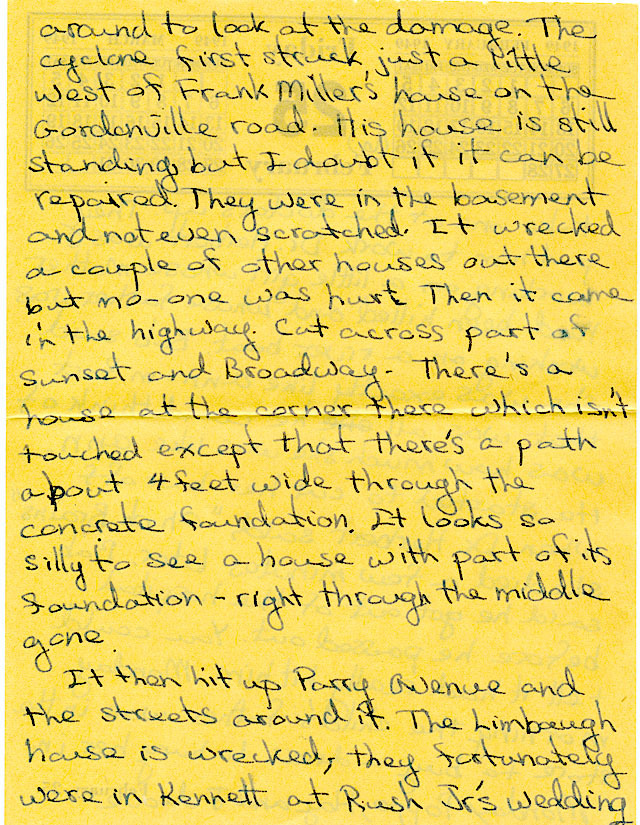 around to look at the damage. The
cyclone first struck, just a little
west of Frank Miller's house on the
Gordonville road. His house is still
standing, but I doubt if it can be
repaired. They were in the basement
and not even scratched. It wrecked
a couple of other houses out there
but no-one was hurt. Then it came
in the highway. Cut across part of
Sunset and Broadway - There's a
house at the corner there which isn't
touched except that there's a path
about 4 feet wide through the
concrete foundation. It looks so
silly to see a house with part of its
foundation - right through the middle
gone.
It then hit up Parry Avenue and
the streets around it. The Limbaugh
house is wrecked, they fortunately
were in Kennett at Rush Jr's wedding